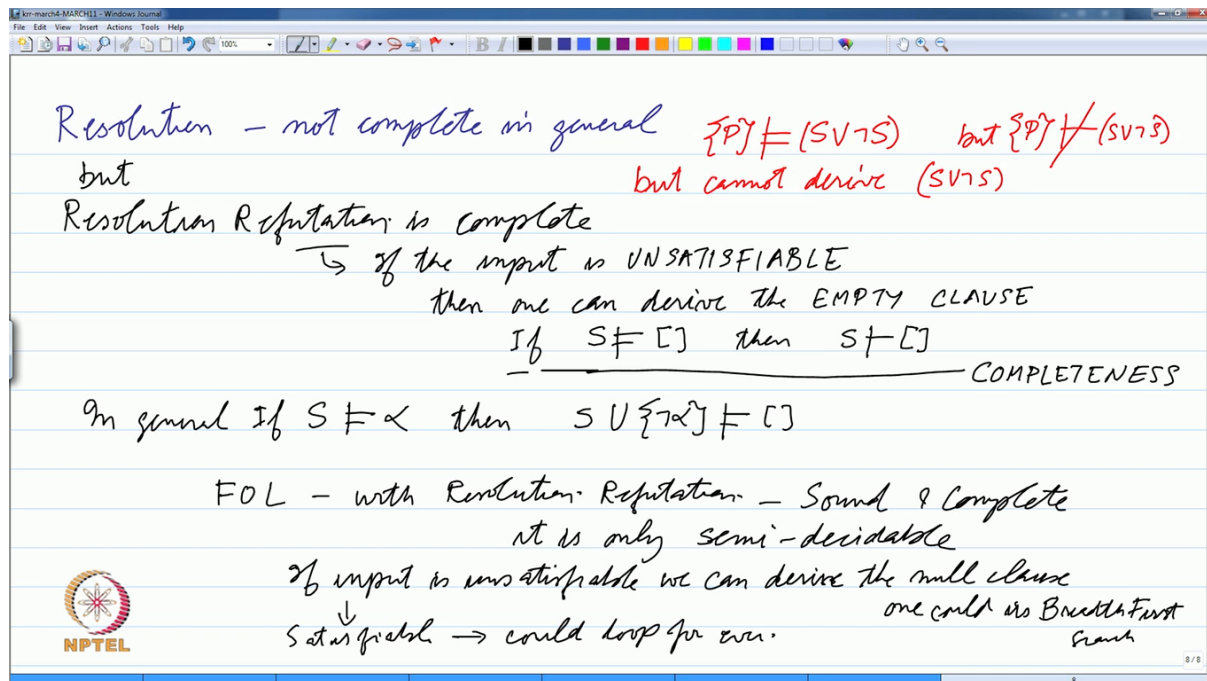 krr-march4-MARCH11 - Windows Journal
File Edit View Insert Actions Tools Help
100%
B I
Resolution – not complete in general {P} ⊨ (S∨¬S) but {P} ⊬ (S∨¬S)
but but cannot derive (S∨¬S)
Resolution Refutation is complete
↳ If the input is UNSATISFIABLE
then one can derive the EMPTY CLAUSE
If S ⊨ [] then S ⊢ []
COMPLETENESS
In general If S ⊨ α then S ∪ {¬α} ⊨ []
FOL – with Resolution Refutation – Sound & Complete
it is only semi-decidable
If input is unsatisfiable we can derive the null clause
↓ one could do Breadth First
Satisfiable → could loop for ever. Search
NPTEL
8 / 8